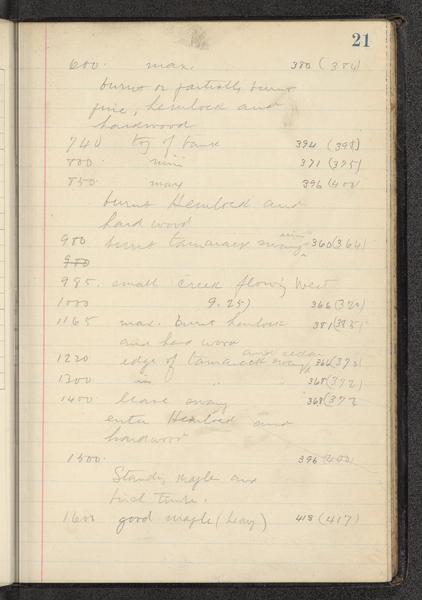 21
600. max. 380 (384)
burnt or partially burnt
pine, hemlock and
hardwood
740 top of bank 394 (398)
800. min 371 (375)
850. max 396 (400
burnt Hemlock and
hard wood
980 burnt tamarack swamp 360 (364)
980
985. small creek flowing West
1000 9.25) 366
1165 max. burnt hemlock 381 (385)
and hard wood
and cedar
1220 edge of tamarack swamp 366 (372)
1300 in " " 368 (372)
1400 leave swamp 368 (372
enter Hemlock and
hardwood
1500. 396 (400
Standing maple and
birch timber.
1600 good maple (heavy) 418 (417)